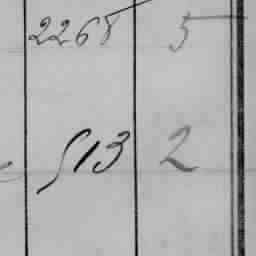 2268 5
513 2